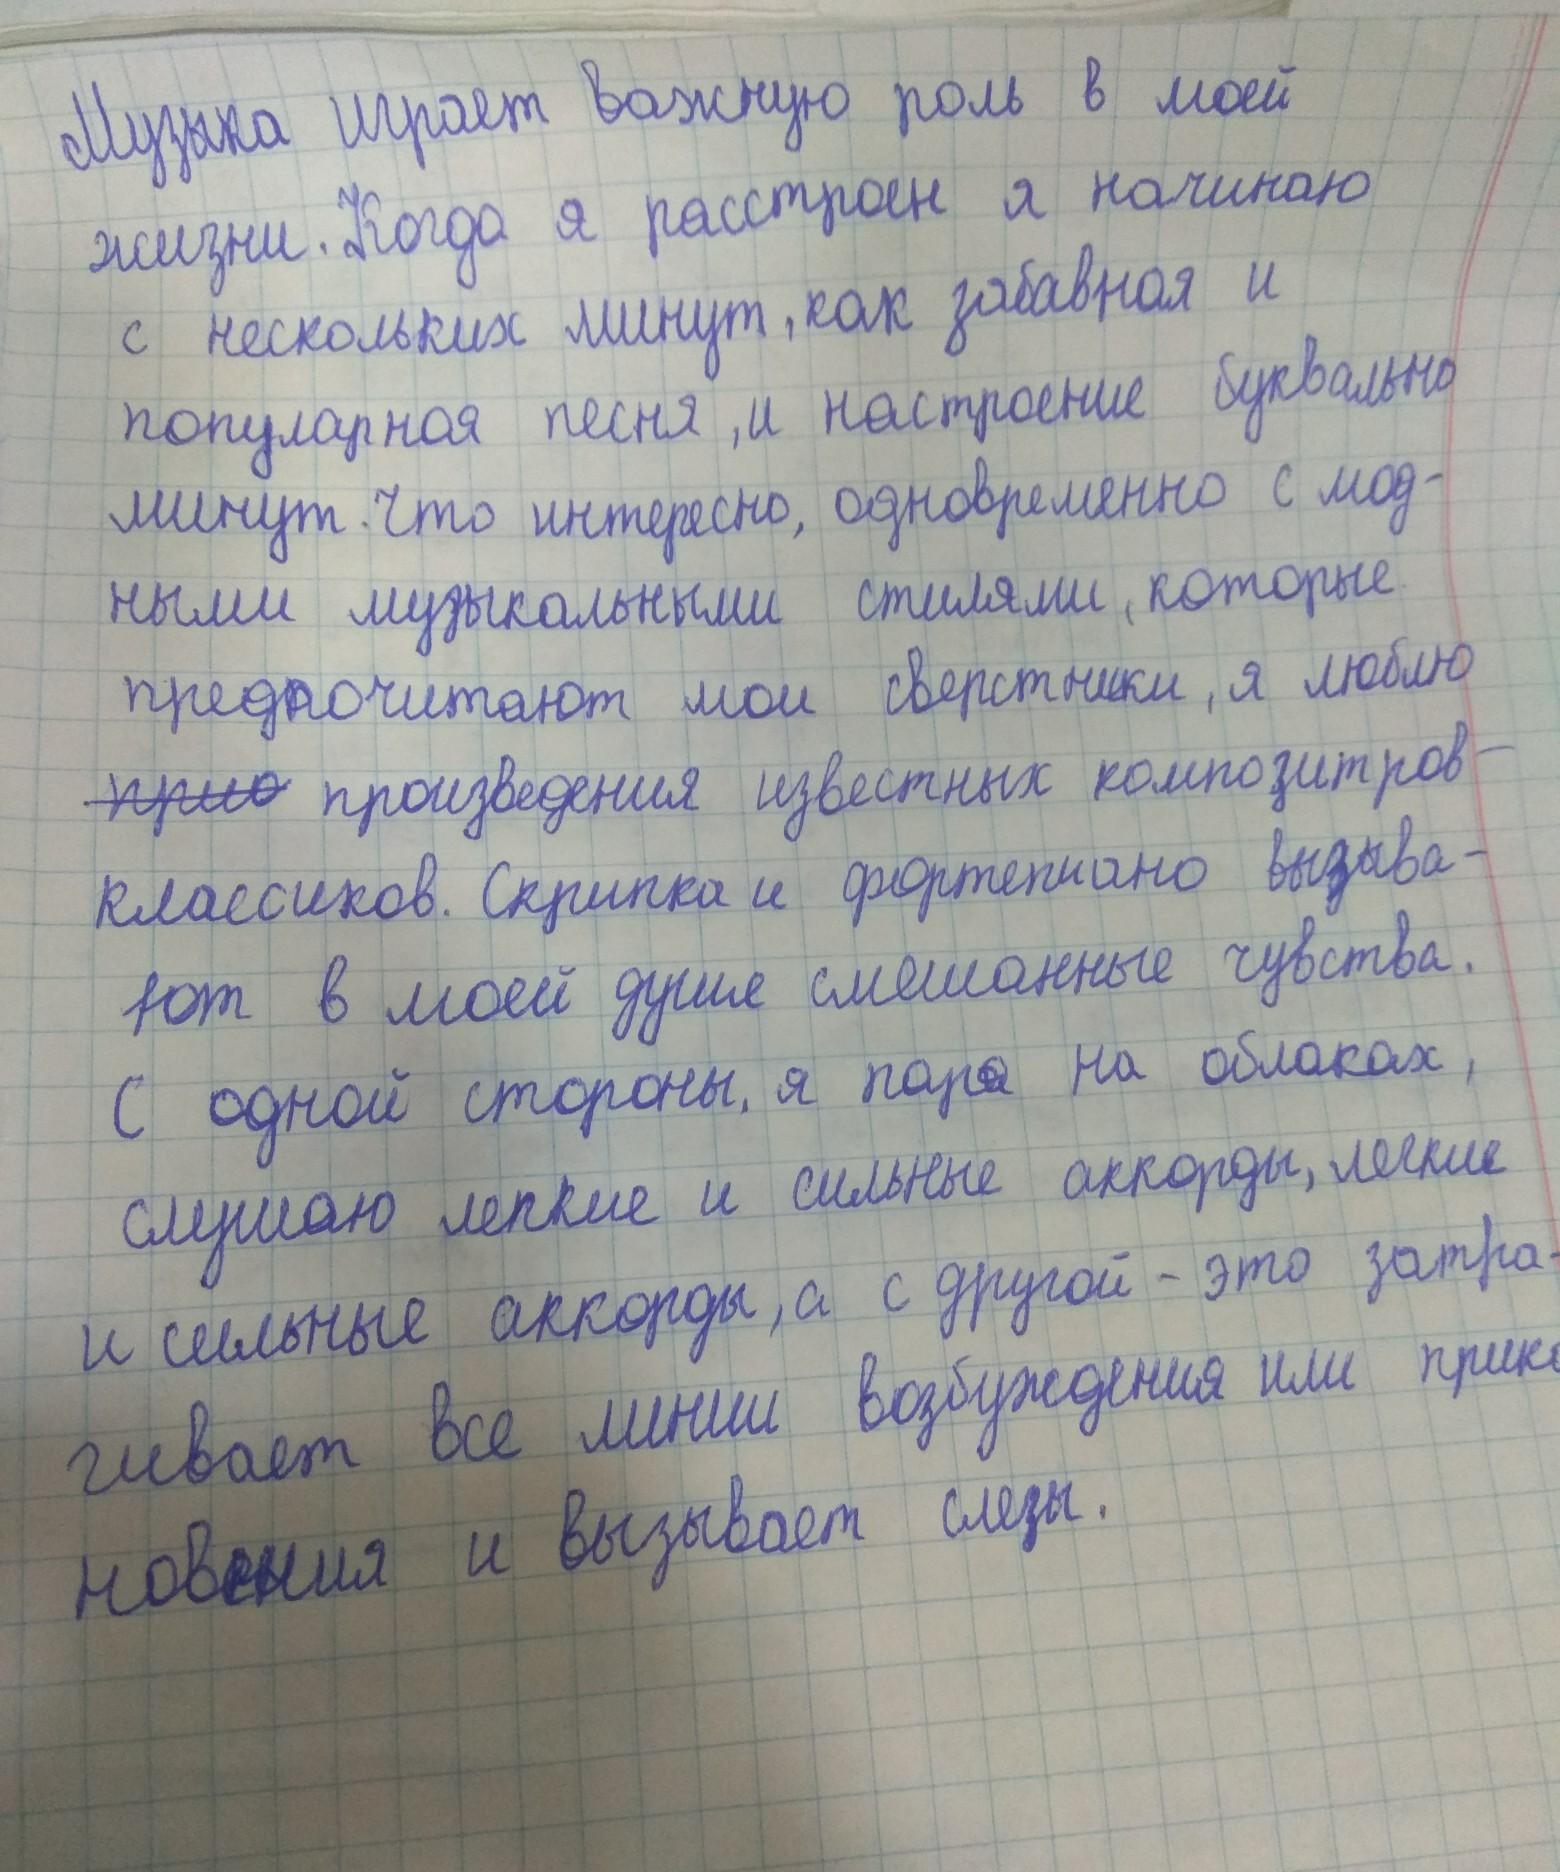 Музыка играет важную роль в моей
жизни. Когда я расстроен я начинаю
с нескольких минут, как забавная и
популарная песня, и настроение буквально
минут. Что интересно, одновременно с мод-
ными музыкальными стилями, которые
предпочитают мои сверстники, я люблю
произведения известных композитров-
классиков. Скрипка и фортепиано вызыва-
ют в моей душе смешанные чувства.
С одной стороны, я пара на облаках,
слушаю лепкие и сильные аккорды, легкие
и сильные аккорды, а с другой - это затра-
гивает все линии возбуждения или прико
новения и вызывает слезы.